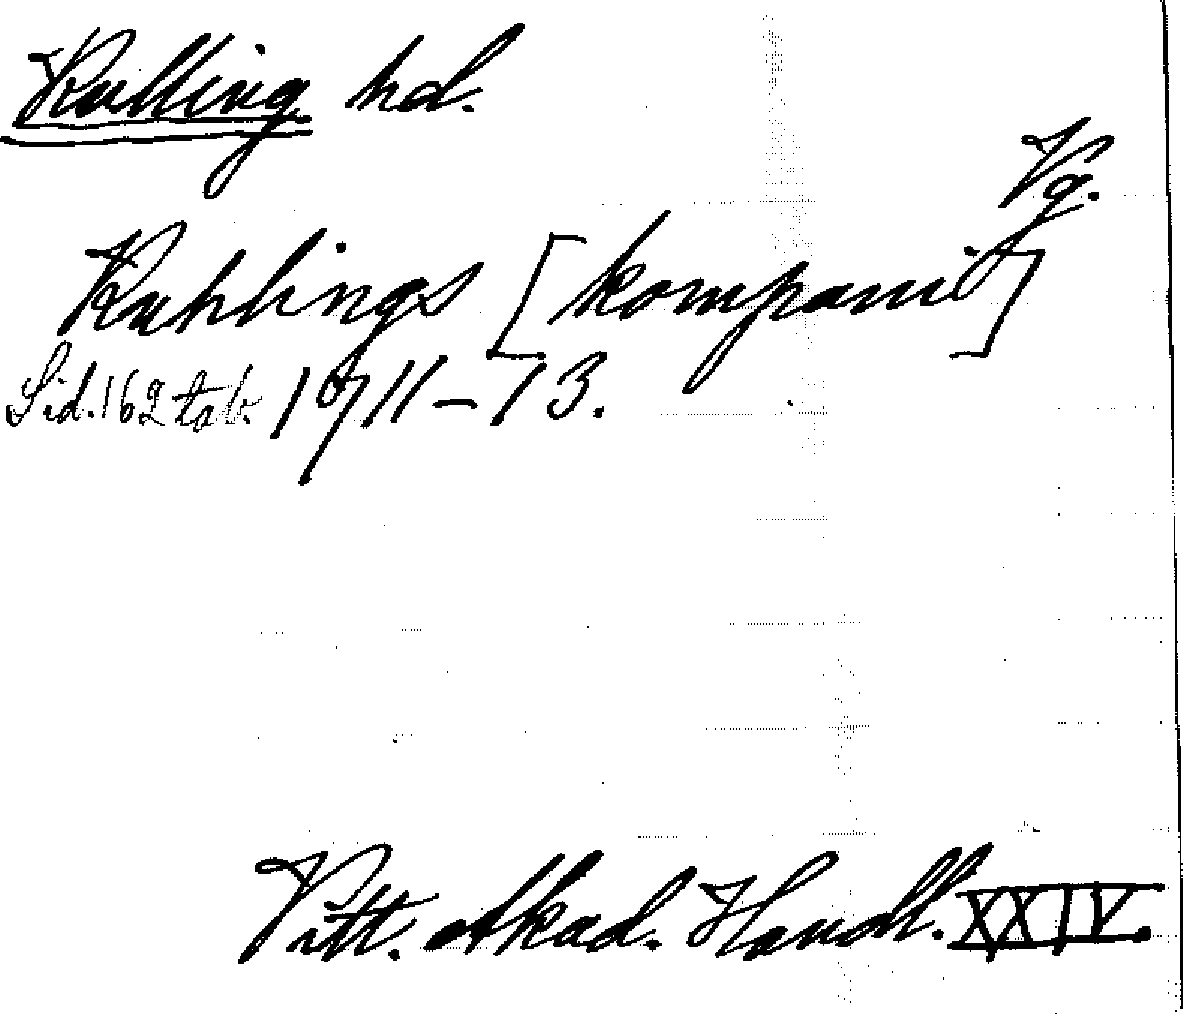 Kulling hd.
Vg.
Kuhlings [kompani]
Sid. 162 tab. 1711-13.
Vitt. Akad. Handl. XXIV.